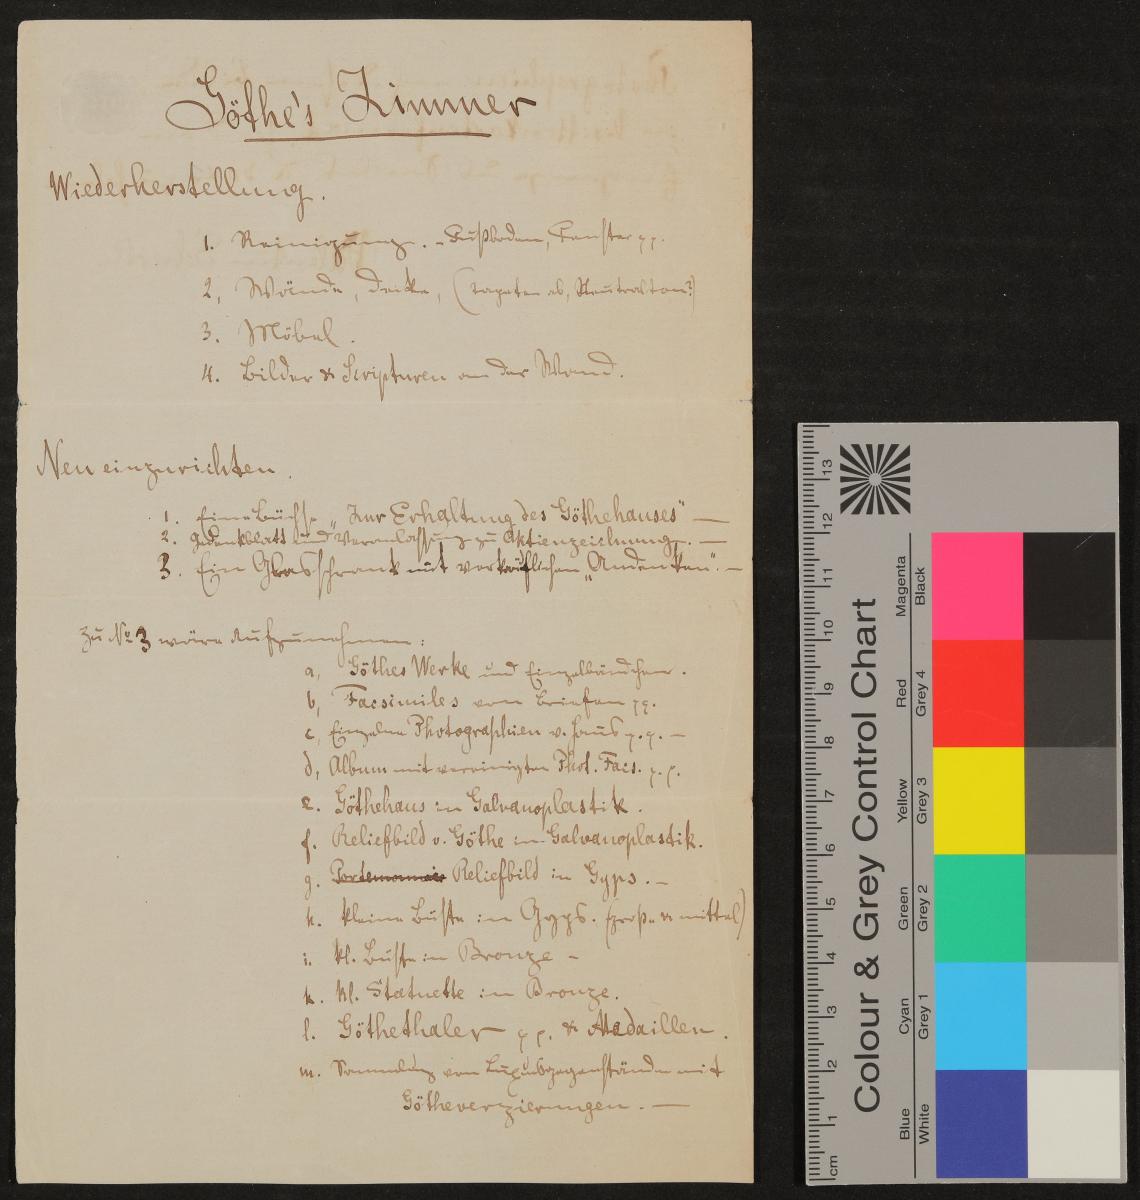 Göthe's Zimmer
Wiederherstellung.
1. Reinigung. – Fußboden, Fenster pp.
2, Wände, Decke, (Tapeten ab, Neutralton?)
3. Möbel.
4. Bilder & Scripturen an der Wand.
Neu einzurichten.
1. Eine Büchse „Zur Erhaltung des Göthehauses" —
2. Gedenkblatt und Veranlassung zu Aktienzeichnung. —
3. Ein Glasschrank mit verkäuflichen „Andenken". —
Zu No 3 wäre aufzunehmen:
a, Göthes Werke und Einzelbändchen.
b, Facsimiles von Briefen pp.
c, Einzelne Photographien v. Haus p.p. —
d, Album mit vereinigten Phot. Facs. p.p.
e. Göthehaus in Galvanoplastik.
f. Reliefbild v. Göthe in Galvanoplastik.
g. Portemonnaie Reliefbild in Gyps. –
h. kleine Büste in Gyps. (große & mittel)
i. kl. Büste in Bronze –
k. kl. Statuette in Bronze.
l. Göthethaler pp. & Medaillen.
m. Sammlung von Luxusgegenständen mit
Götheverzierungen. —
Colour & Grey Control Chart
Blue Cyan Green Yellow Red Magenta
White Grey 1 Grey 2 Grey 3 Grey 4 Black
cm 1 2 3 4 5 6 7 8 9 10 11 12 13